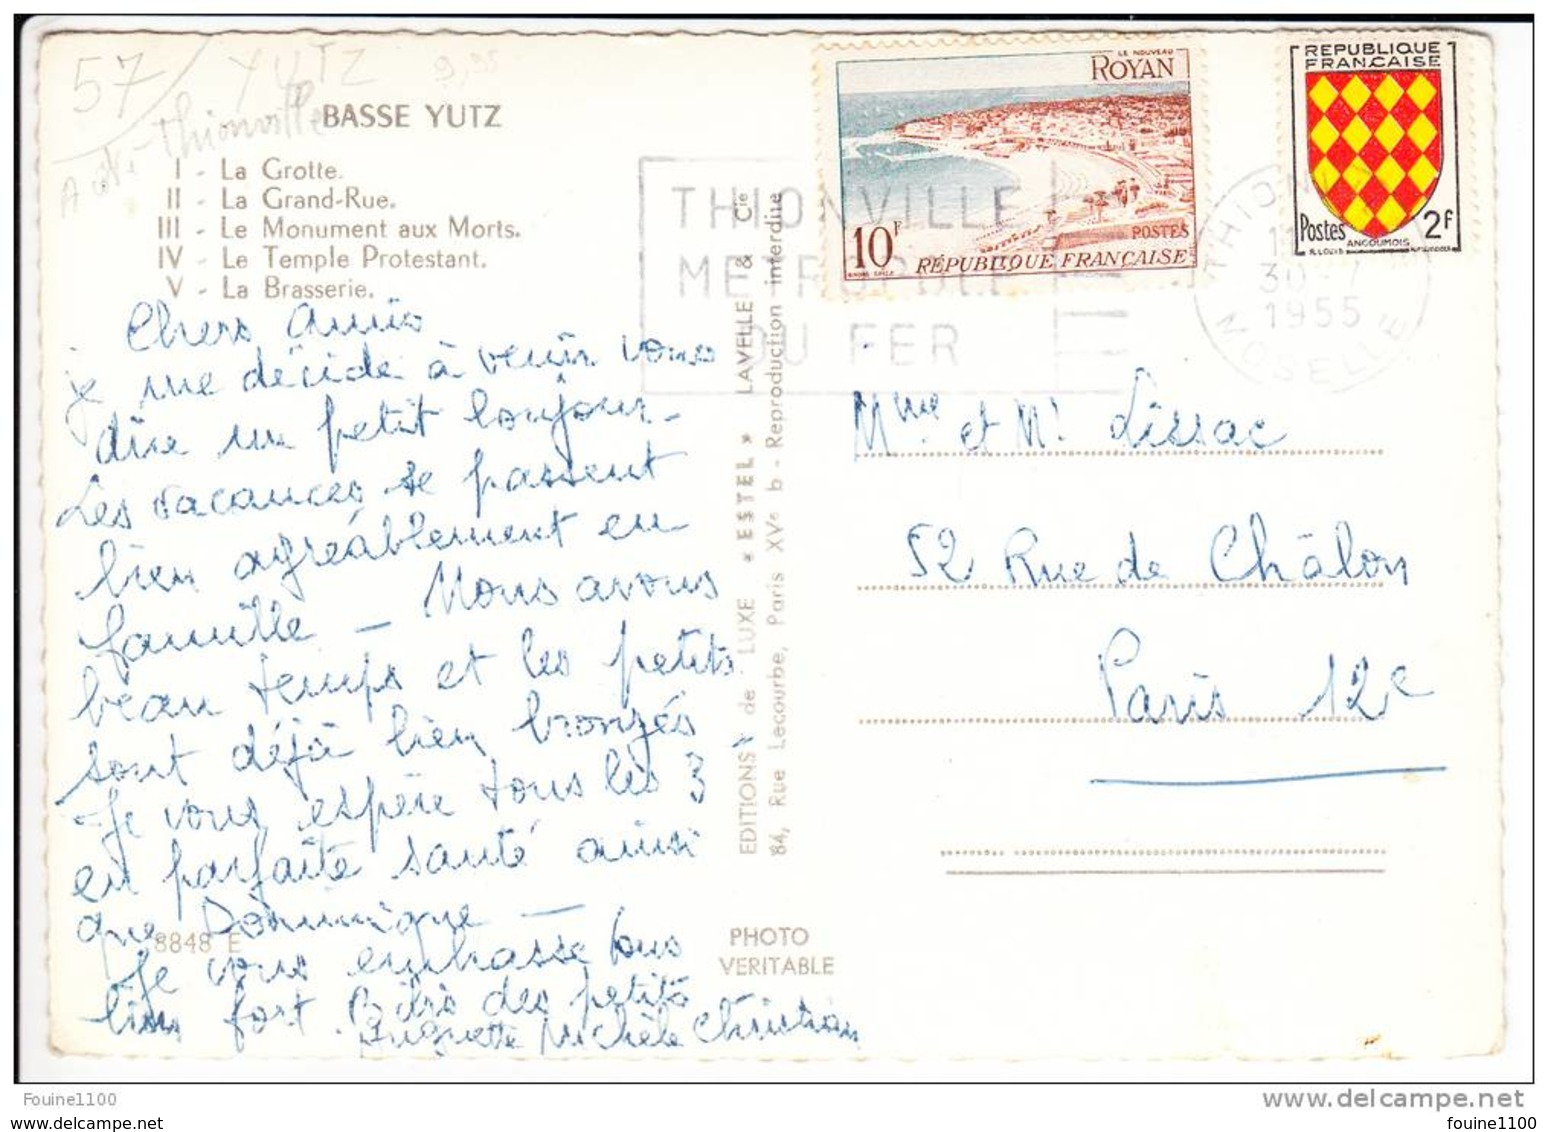 57 YUTZ 9,95
A côté Thionville
BASSE YUTZ
I - La Grotte.
II - La Grand-Rue.
III - Le Monument aux Morts.
IV - Le Temple Protestant.
V - La Brasserie.
Chers Amis
je me décide à venir vous
dire un petit bonjour -
Les vacances se passent
bien agréablement en
famille — Nous avons
beau temps et les petits
sont déjà bien bronzés
- Je vous espère tous les 3
en parfaite santé ainsi
que Dominique —
8848 E
Je vous embrasse tous
bien fort. Bises des petits
Huguette Michèle Christian
EDITIONS de LUXE « ESTEL » LAVELLE & Cie
84, Rue Lecourbe, Paris XVe b - Reproduction interdite
PHOTO
VERITABLE
THIONVILLE
METROPOLE
DU FER
LE NOUVEAU
ROYAN
10F
POSTES
RÉPUBLIQUE FRANÇAISE
REPUBLIQUE
FRANÇAISE
Postes 2F
ANGOUMOIS
R. LOUIS
THIONVILLE
30-7
1955
MOSELLE
Mme et Mr Lissac
52 Rue de Châlon
Paris 12e
Fouine1100
www.delcampe.net
fouine1100